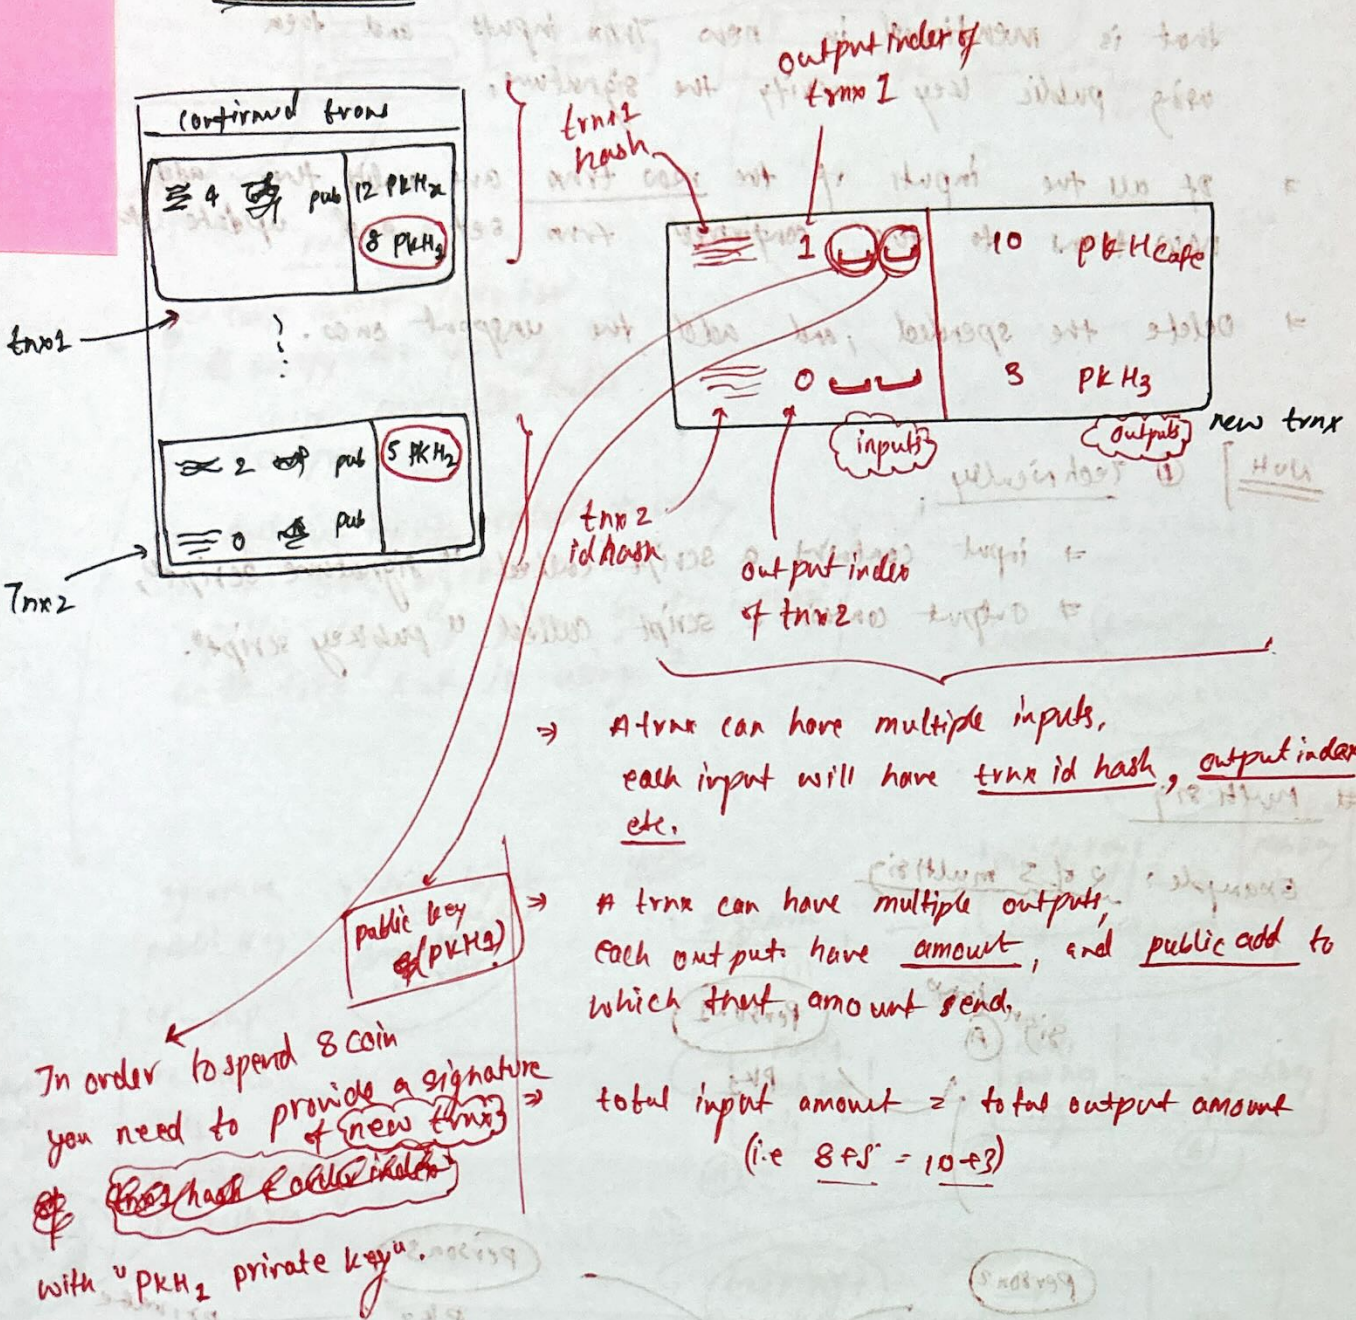 confirmed trans
4 pub 12 PKHx
8 PKH1
tnx1
2 pub 5 PKH2
0 pub
Tnx2
output index of
trnx 1
trnx1
hash
1 10 PKHcafe
0 3 PKH3
inputs
outputs
new trnx
tnx 2
id hash
output index
of tnx2
⇒ A trnx can have multiple inputs,
each input will have trnx id hash, output index
etc.
⇒ A trnx can have multiple outputs,
each output have amount, and public add to
which that amount send.
⇒ total input amount = total output amount
(i.e 8+5 = 10+3)
public key
(PKH1)
In order to spend 8 coin
you need to provide a signature
of new trnx
with "PKH1 private key".